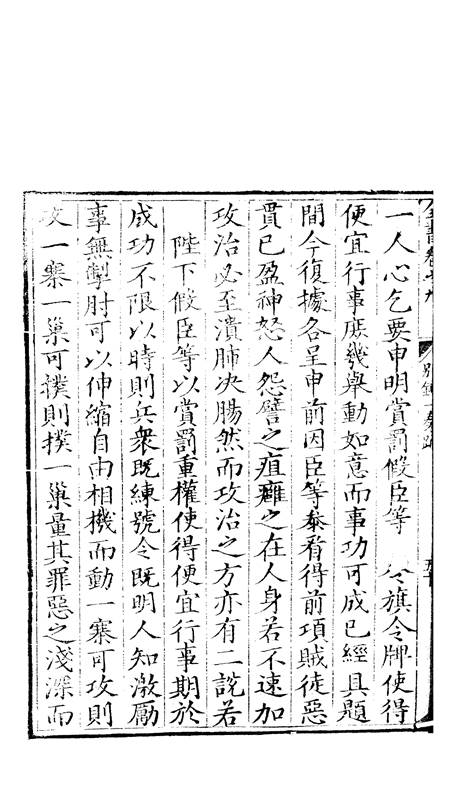 一人心乞要申明賞罰假臣等 令旗令牌使得
便宜行事庶幾舉動如意而事功可成已經具題
間今復據各呈申前因臣等叅看得前項賊徒惡
貫已盈神怒人怨譬之疽癰之在人身若不速加
攻治必至潰肺决腸然而攻治之方亦有二說若
陛下假臣等以賞罰重權使得便宜行事期於
成功不限以時則兵衆既練號令既明人知激厲
事無掣肘可以伸縮自由相機而動一寨可攻則
攻一寨一巢可撲則撲一巢量其罪惡之淺深而